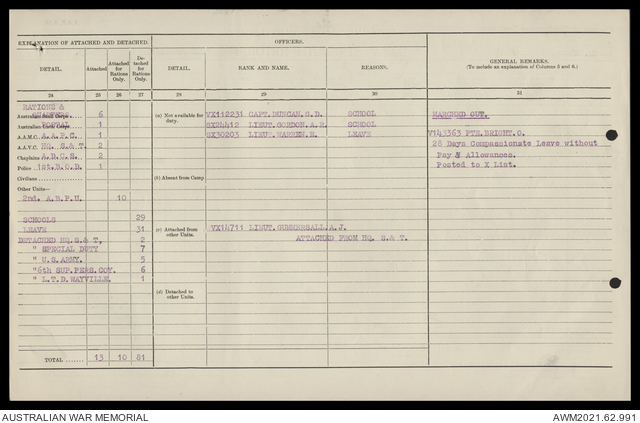 EXPLANATION OF ATTACHED AND DETACHED.
OFFICERS.
GENERAL REMARKS.
(To include an explanation of Columns 5 and 6.)
DETAIL. Attached Attached for Rations Only. Detached for Rations Only. DETAIL. RANK AND NAME. REASONS.
24 25 26 27 28 29 30 31
RATIONS &
Australian 6 (a) Not available for duty. VX112231 CAPT. DUNCAN.S.D. SCHOOL MARCHED OUT.
Australian POSTAL 1 SX24412 LIEUT. GORDON.A.R. SCHOOL
A.A.M.C. A.A.P.C. 1 SX30203 LIEUT. WARREN.H. LEAVE V143363 PTE.BRIGHT.O.
A.A.V.C. HQ. S.& T. 2 28 Days Compassionate Leave without
Chaplains A.D.O.S. 2 Pay & Allowances.
Police 1st.B.O.D. 1 Posted to X List.
Civilians
(b) Absent from Camp
Other Units—
2nd. A.B.P.U. 10
SCHOOLS 29
LEAVE 31 (c) Attached from other Units. VX14711 LIEUT. GUMMERSALL.A.J.
DETACHED HQ.S.& T. 2 ATTACHED FROM HQ. S.& T.
" SPECIAL DUTY 7
" U.S.ARMY. 5
"6th SUP.PERS.COY. 6
" L.T.D.WAYVILLE. 1
(d) Detached to other Units.
TOTAL 13 10 81
AUSTRALIAN WAR MEMORIAL
AWM2021.62.991